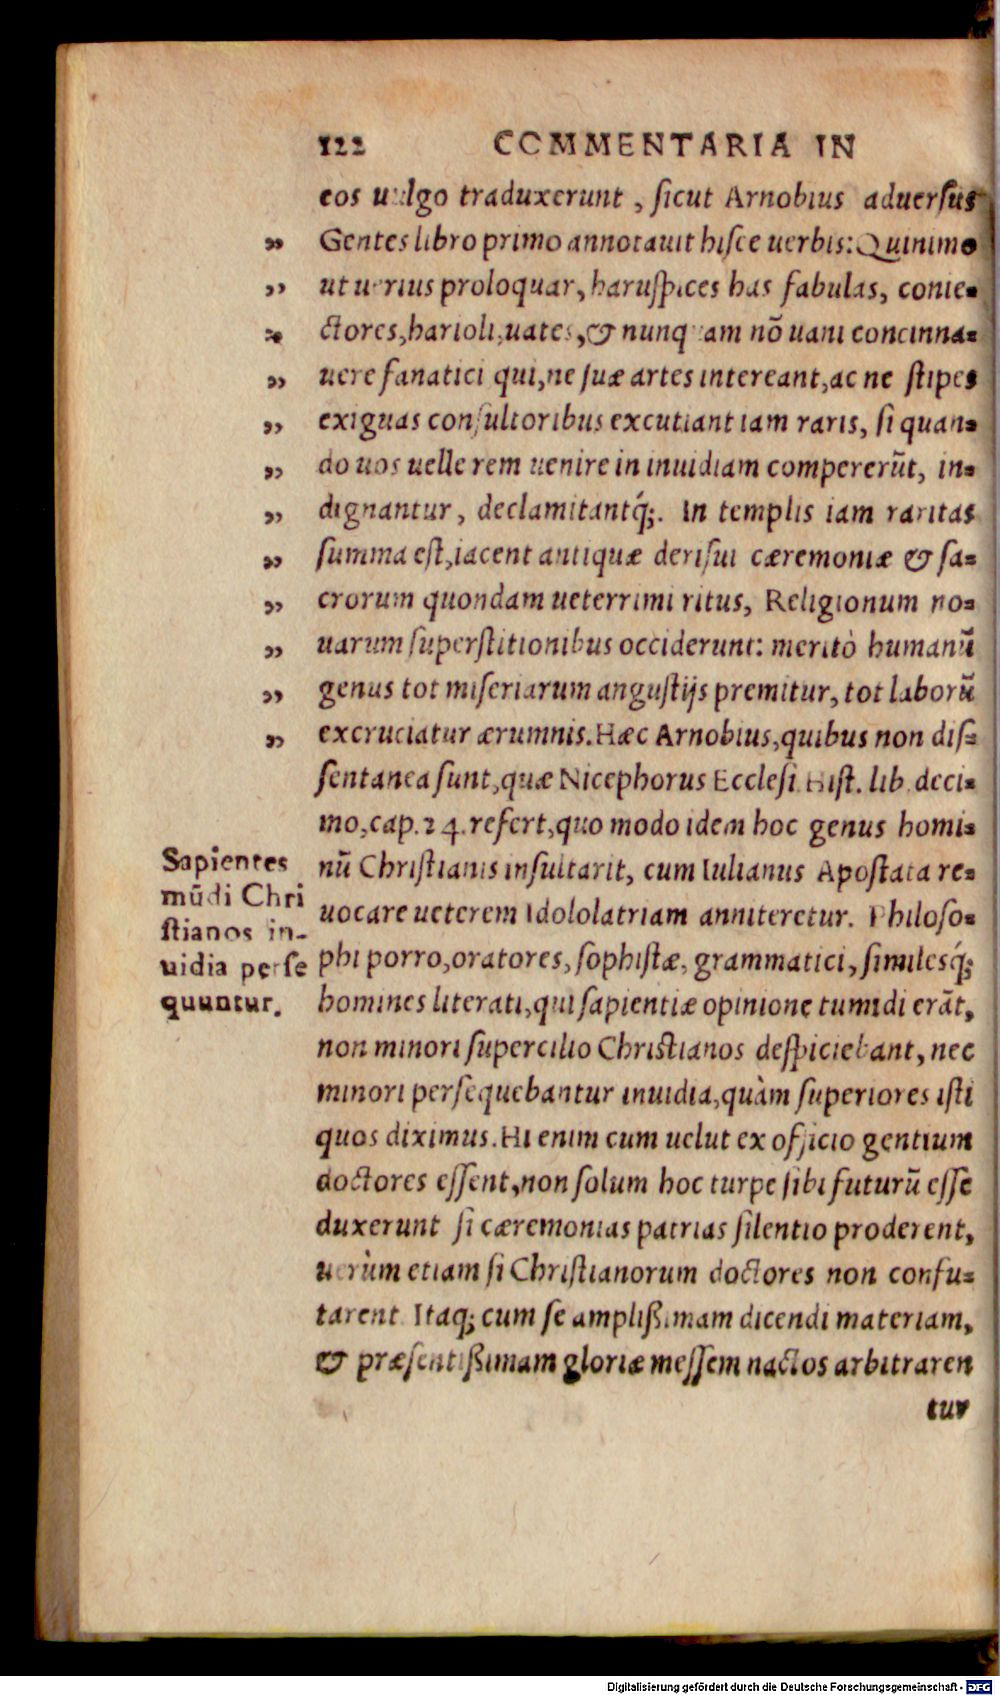 122 COMMENTARIA IN
eos uulgo traduxerunt, sicut Arnobius aduersus
„ Gentes libro primo annotauit hisce uerbis: Quinimo
„ ut uerius proloquar, haruspices has fabulas, conie-
„ ctores, harioli, uates, & nunquam nō uani concinna-
„ uere fanatici qui, ne suæ artes intereant, ac ne stipes
„ exiguas consultoribus excutiant iam raris, si quan-
„ do uos uelle rem uenire in inuidiam compererūt, in-
„ dignantur, declamitantq́;. In templis iam raritas
„ summa est, iacent antiquæ derisui cæremoniæ & sa-
„ crorum quondam ueterrimi ritus, Religionum no-
„ uarum superstitionibus occiderunt: meritò humanū
„ genus tot miseriarum angustijs premitur, tot laborū
„ excruciatur ærumnis. Hæc Arnobius, quibus non dis-
sentanea sunt, quæ Nicephorus Ecclesi. Hist. lib. deci-
mo, cap. 24. refert, quo modo idem hoc genus homi-
nū Christianis insultarit, cum Iulianus Apostata re-
uocare ueterem Idololatriam anniteretur. Philoso-
phi porro, oratores, sophistæ, grammatici, similesq́;
homines literati, qui sapientiæ opinione tumidi erāt,
non minori supercilio Christianos despiciebant, nec
minori persequebantur inuidia, quàm superiores isti
quos diximus. Hi enim cum uelut ex officio gentium
doctores essent, non solum hoc turpe sibi futurū esse
duxerunt si cæremonias patrias silentio proderent,
uerùm etiam si Christianorum doctores non confu-
tarent. Itaq; cum se amplißimam dicendi materiam,
& præsentißimam gloriæ messem nactos arbitraren
tur
Sapientes
mūdi Chri
stianos in-
uidia perse
quuntur.
Digitalisierung gefördert durch die Deutsche Forschungsgemeinschaft - DFG